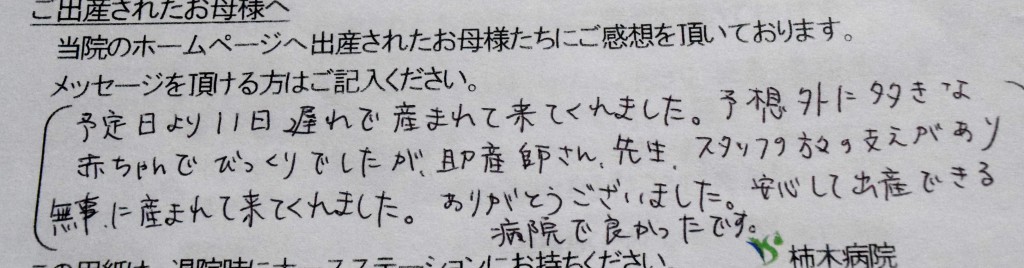 ご出産されたお母様へ
当院のホームページへ出産されたお母様たちにご感想を頂いております。
メッセージを頂ける方はご記入ください。
予定日より11日遅れで産まれて来てくれました。予想外に大きな
赤ちゃんでびっくりでしたが、助産師さん、先生、スタッフの方の支えがあり
無事に産まれて来てくれました。ありがとうございました。安心して出産できる
病院で良かったです。
この用紙は、退院時にナースステーションにお持ちください。
柿木病院